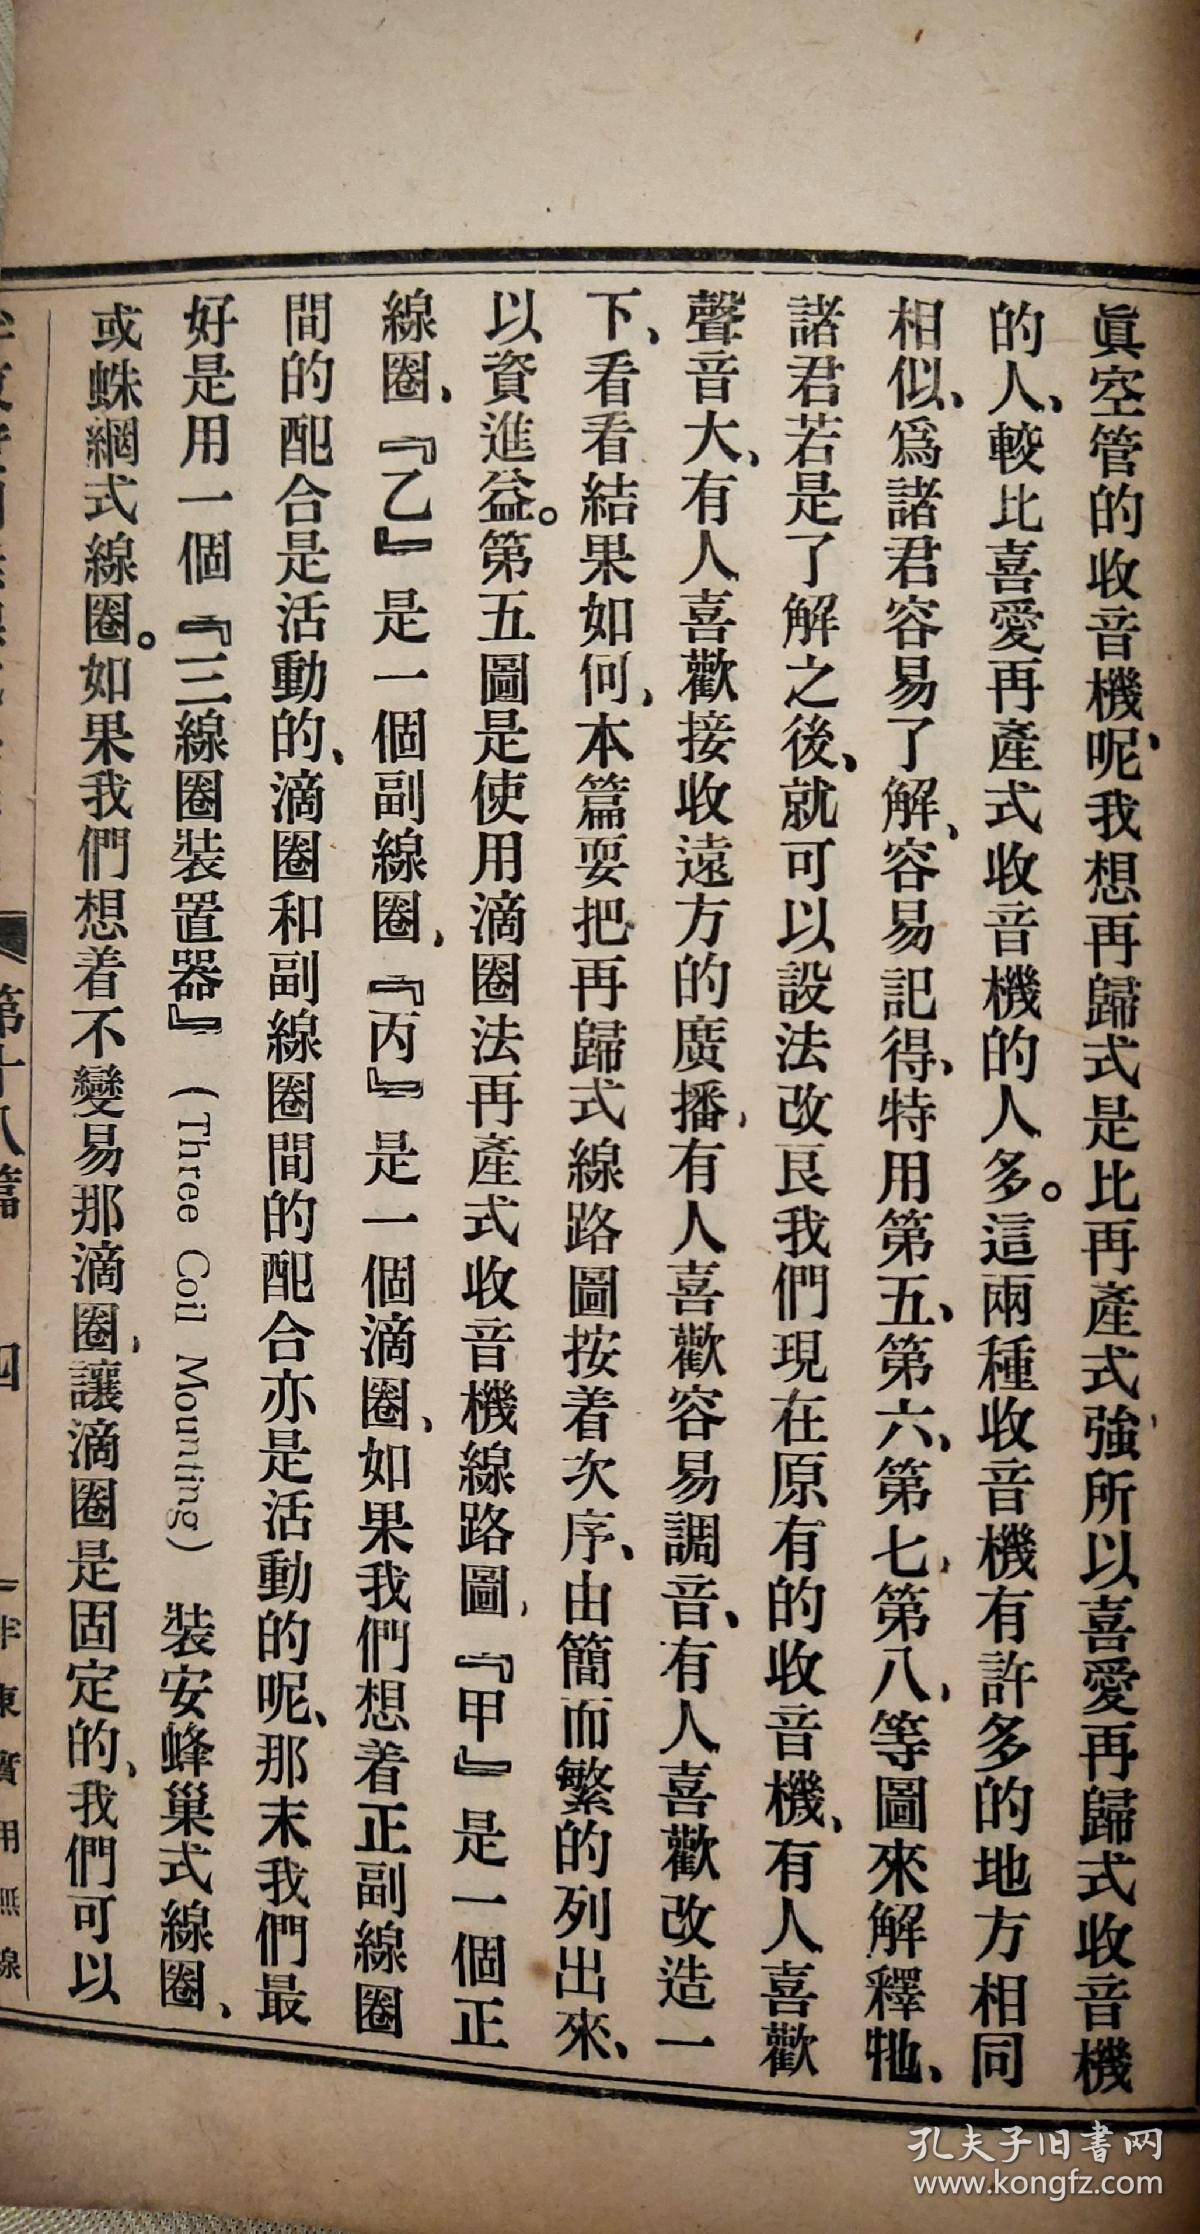 眞空管的收音機、呢我想再歸式是比再產式強、所以喜愛再歸式收音機
的人、較比喜愛再產式收音機的人多。這兩種收音機有許多的地方相同
相似、爲諸君容易了解、容易記得、特用第五、第六、第七、第八、等圖來解釋牠、
諸君若是了解之後、就可以設法改良我們現在原有的收音機、有人喜歡
聲音大、有人喜歡接收遠方的廣播、有人喜歡容易調音、有人喜歡改造一
下、看看結果如何、本篇要把再歸式線路圖按着次序、由簡而繁的列出來、
以資進益。第五圖是使用滴圈法再產式收音機線路圖、『甲』是一個正
線圈、『乙』是一個副線圈、『丙』是一個滴圈、如果我們想着正副線圈
間的配合是活動的、滴圈和副線圈間的配合亦是活動的呢、那末我們最
好是用一個『三線圈裝置器』(Three Coil Mounting)裝安蜂巢式線圈、
或蛛網式線圈。如果我們想着不變易那滴圈、讓滴圈是固定的、我們可以
第十八篇 四
東實用無線
孔夫子旧書网
www.kongfz.com